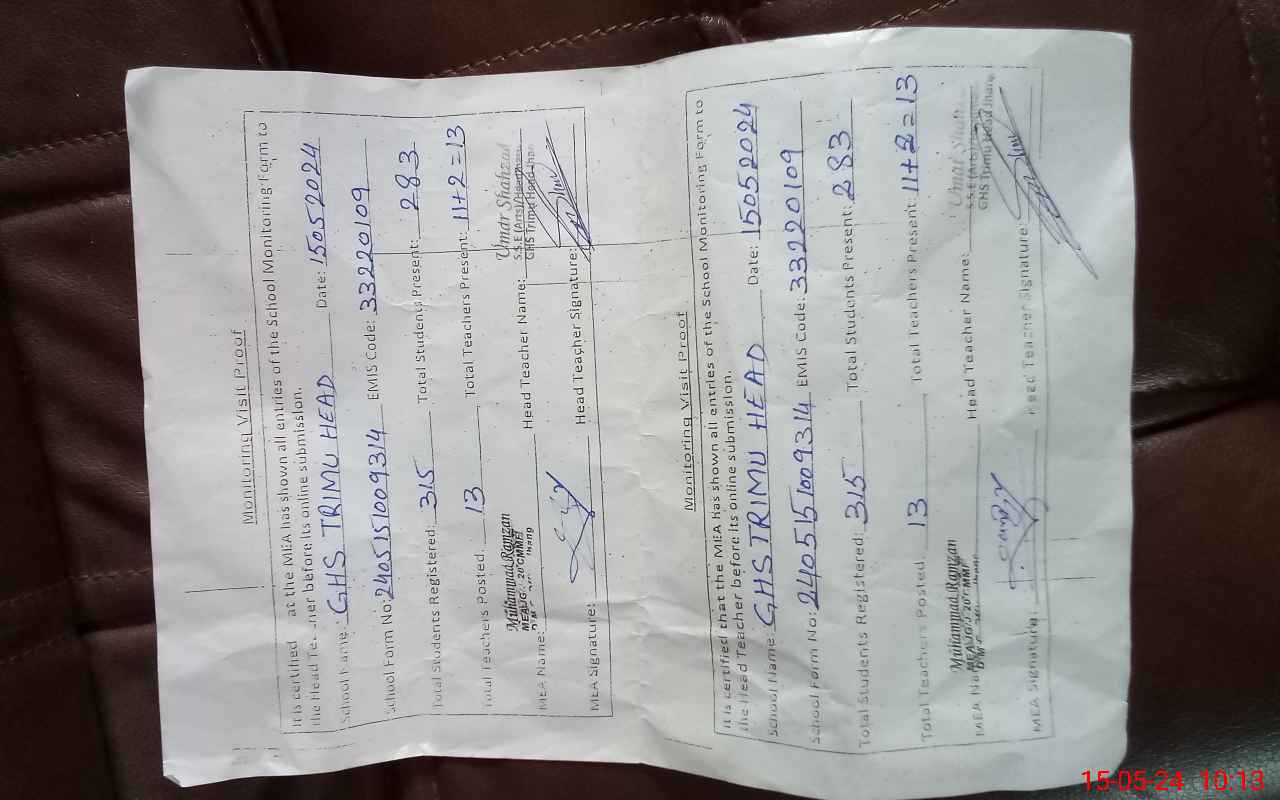 Monitoring Visit Proof
It is certified at the MEA has shown all entries of the School Monitoring Form to
the Head Teacher before its online submission.
School Name: GHS TRIMU HEAD Date: 15052024
School Form No: 2405151009314 EMIS Code: 33220109
Total Students Registered: 315 Total Students Present: 283
Total Teachers Posted: 13 Total Teachers Present: 11+2=13
Muhammad Ramzan
Umar Shahzad
S.S.E (Arts)
GHS Trimu Head Jhang
MEA Name: Head Teacher Name:
MEA Signature: Head Teacher Signature:
Monitoring Visit Proof
It is certified that the MEA has shown all entries of the School Monitoring Form to
the Head Teacher before its online submission.
School Name: GHS TRIMU HEAD Date: 15052024
School Form No: 2405151009314 EMIS Code: 33220109
Total Students Registered: 315 Total Students Present: 283
Total Teachers Posted: 13 Total Teachers Present: 11+2=13
Muhammad Ramzan
Umar Shah
S.S.E (Arts)
GHS Trimu Head Jhang
MEA Name: Head Teacher Name:
MEA Signature: Head Teacher Signature:
15-05-24 10:13